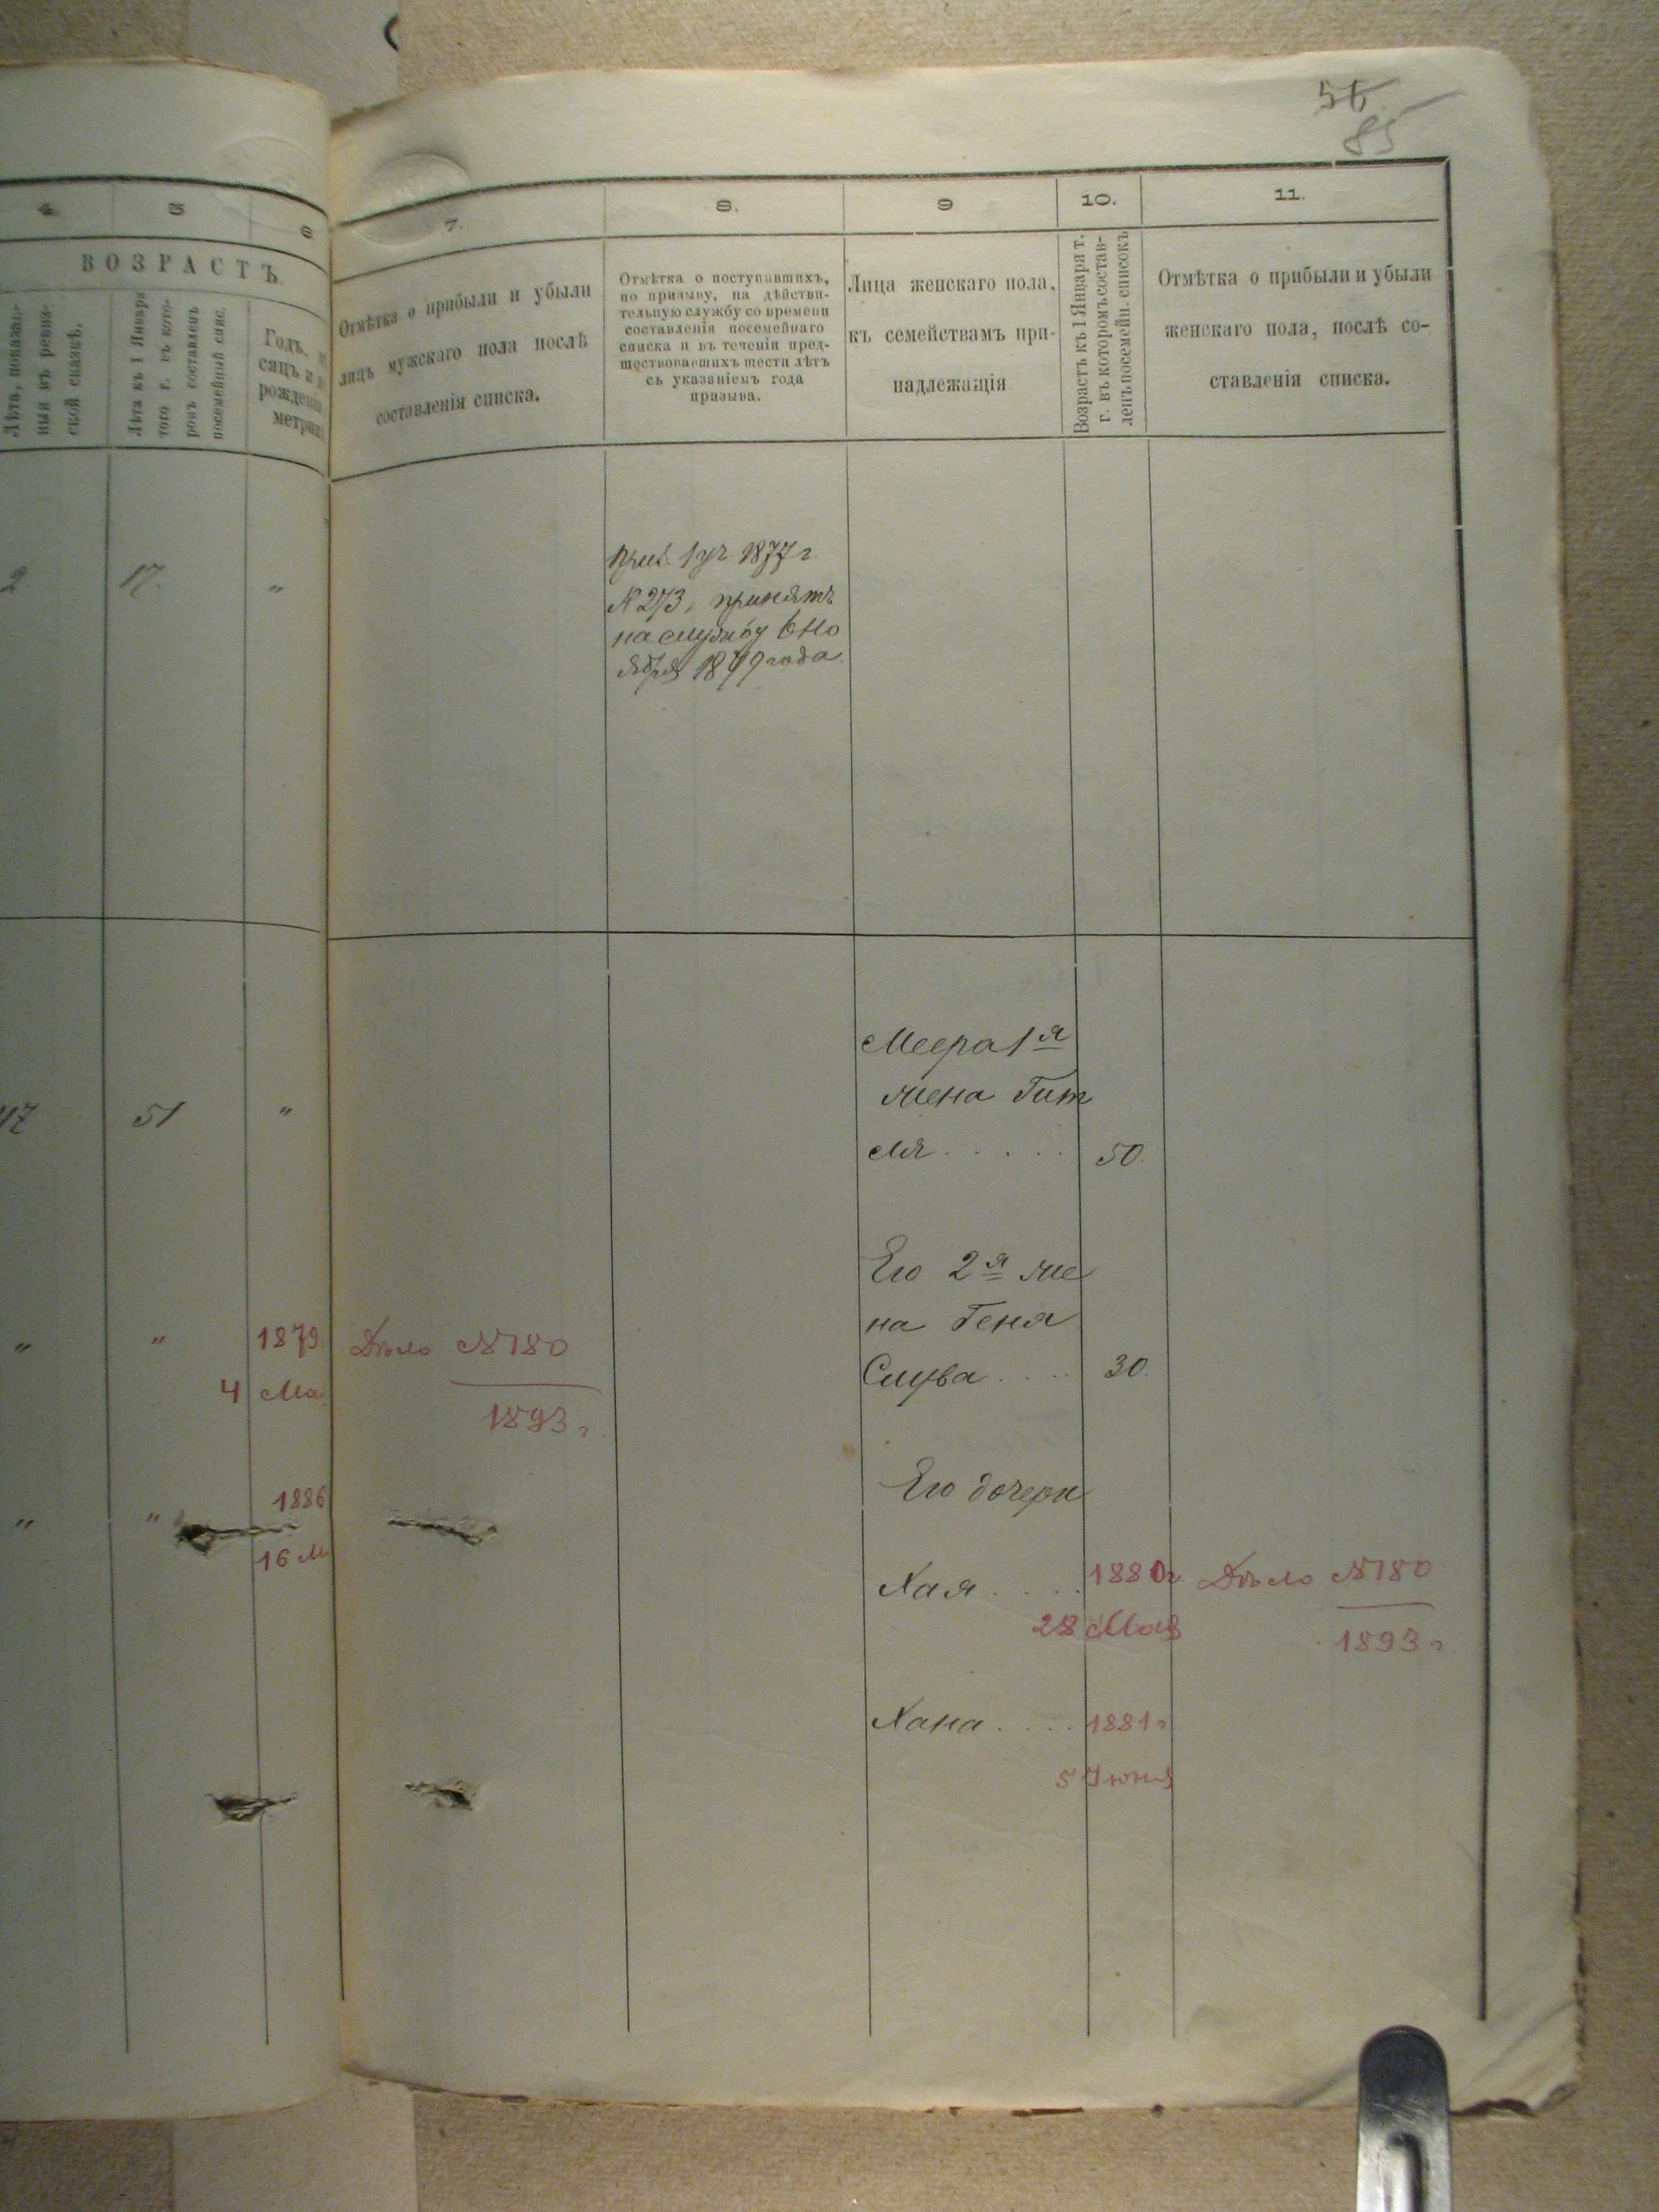 56.
85
4
5
6
ВОЗРАСТЪ.
Лѣта, показан-
ныя въ ревиз-
ской сказкѣ.
Лѣта къ 1 Января
того г. въ кото-
ромъ составленъ
посемейный спис.
Годъ,
сяцъ и
рожденія
метрик
7.
Отмѣтка о прибыли и убыли
лицъ мужскаго пола послѣ
составленія списка.
8.
Отмѣтка о поступившихъ,
по призыву, на дѣйстви-
тельную службу со времени
составленія посемейнаго
списка и въ теченіи пред-
шествовавшихъ шести лѣтъ
съ указаніемъ года
призыва.
9
Лица женскаго пола,
къ семействамъ при-
надлежащія
10.
Возрастъ къ 1 Января т.
г. въ которомъ состав-
ленъ посемейн. списокъ
11.
Отмѣтка о прибыли и убыли
женскаго пола, послѣ со-
ставленія списка.
2.
17.
"
Приз. 1 уч. 1877 г
№ 273, принятъ
на службу 6 Но
ября 1879 года.
47
51
"
Меера 1я
жена Гит
ля . . . . . 50.
Его 2я же
на Геня
Слува . . . . 30.
"
"
1879
4 Ма
Дѣло № 180
1893 г.
"
"
1886
16 М
Его дочери
Хая . . . . 1880 г.
28 Мая
Дѣло № 180
1893 г
Хана . . . . 1881 г
5 Июня